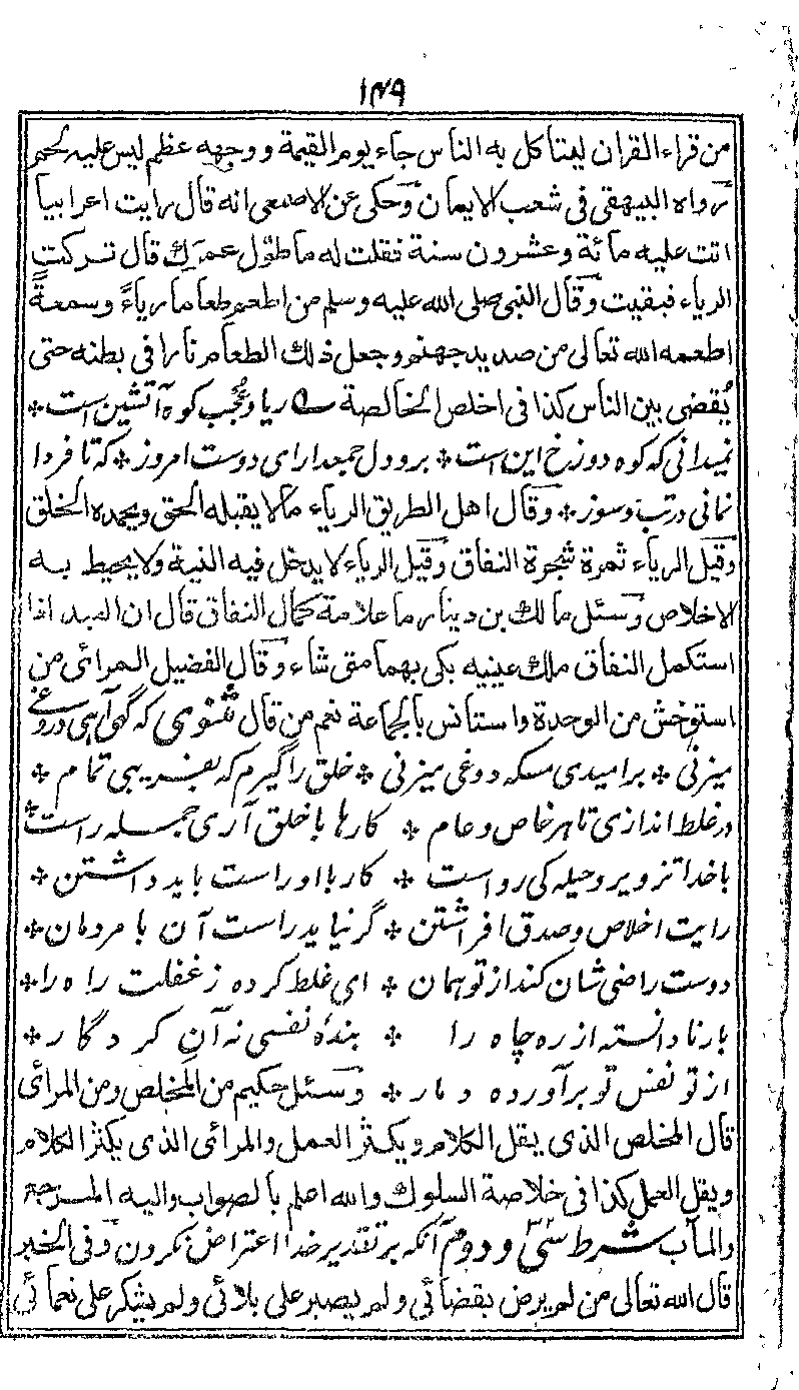 ۱۴۹
من قراء القران ليتأكل به الناس جاء يوم القيمة ووجهه عظم ليس عليه لحم
رواه البيهقى فى شعب الايمان وحكى عن الاصمعى انه قال رايت اعرابيا
اتت عليه مائة وعشرون سنة فقلت له ما طول عمرك قال تركت
الرياء فبقيت وقال النبى صلى الله عليه وسلم من اطعم طعاما رياءً وسمعةً
اطعمه الله تعالى من صديد جهنم وجعل ذلك الطعام نارا فى بطنه حتى
يُقضى بين الناس كذا فى اخلص الخالصة ریا وعُجب کوه آتشین است *
نمیدانی که کوه دوزخ این است * برو دل جمعدار ای دوست امروز * که تا فردا
نمانی در تب و سوز * وقال اهل الطريق الرياء ما لا يقبله الحق ويحمده الخلق
وقيل الرياء ثمرة شجرة النفاق وقيل الرياء لا يدخل فيه النية ولا يحيط به
الاخلاص وسئل مالك بن دينار ما علامة كمال النفاق قال ان العبد اذا
استكمل النفاق ملك عينيه بكى بهما متى شاء وقال الفضيل المرائى من
استوحش من الوحدة واستانس بالجماعة نعم من قال مثنوی که گهی آهی دروغی
میزنی * بر امیدی مسکه دوغی میزنی * خلق را گیرم که بفریبی تمام *
در غلط اندازی تا هر خاص و عام * کارها با خلق آری جمله راست *
با خدا تزویر و حیله کی رواست * کار با او راست باید داشتن *
رایت اخلاص و صدق افراشتن * گر نیاید راست آن با مردمان *
دوست راضی شان کند از تو همان * ای غلط کرده ز غفلت راه را *
باز نادانسته از ره چاه را * بندهٔ نفسی نه آنِ کردگار *
از تو نفس تو برآورده دمار * وسئل حكيم من المخلص ومن المرائى
قال المخلص الذى يقل الكلام ويكثر العمل والمرائى الذى يكثر الكلام
ويقل العمل كذا فى خلاصة السلوك والله اعلم بالصواب واليه المرجع
والمآب شرط سی و دوم آنکه بر تقدیر خدا اعتراض نکردن وفى الخبر
قال الله تعالى من لم يرض بقضائى ولم يصبر على بلائى ولم يشكر على نعمائى